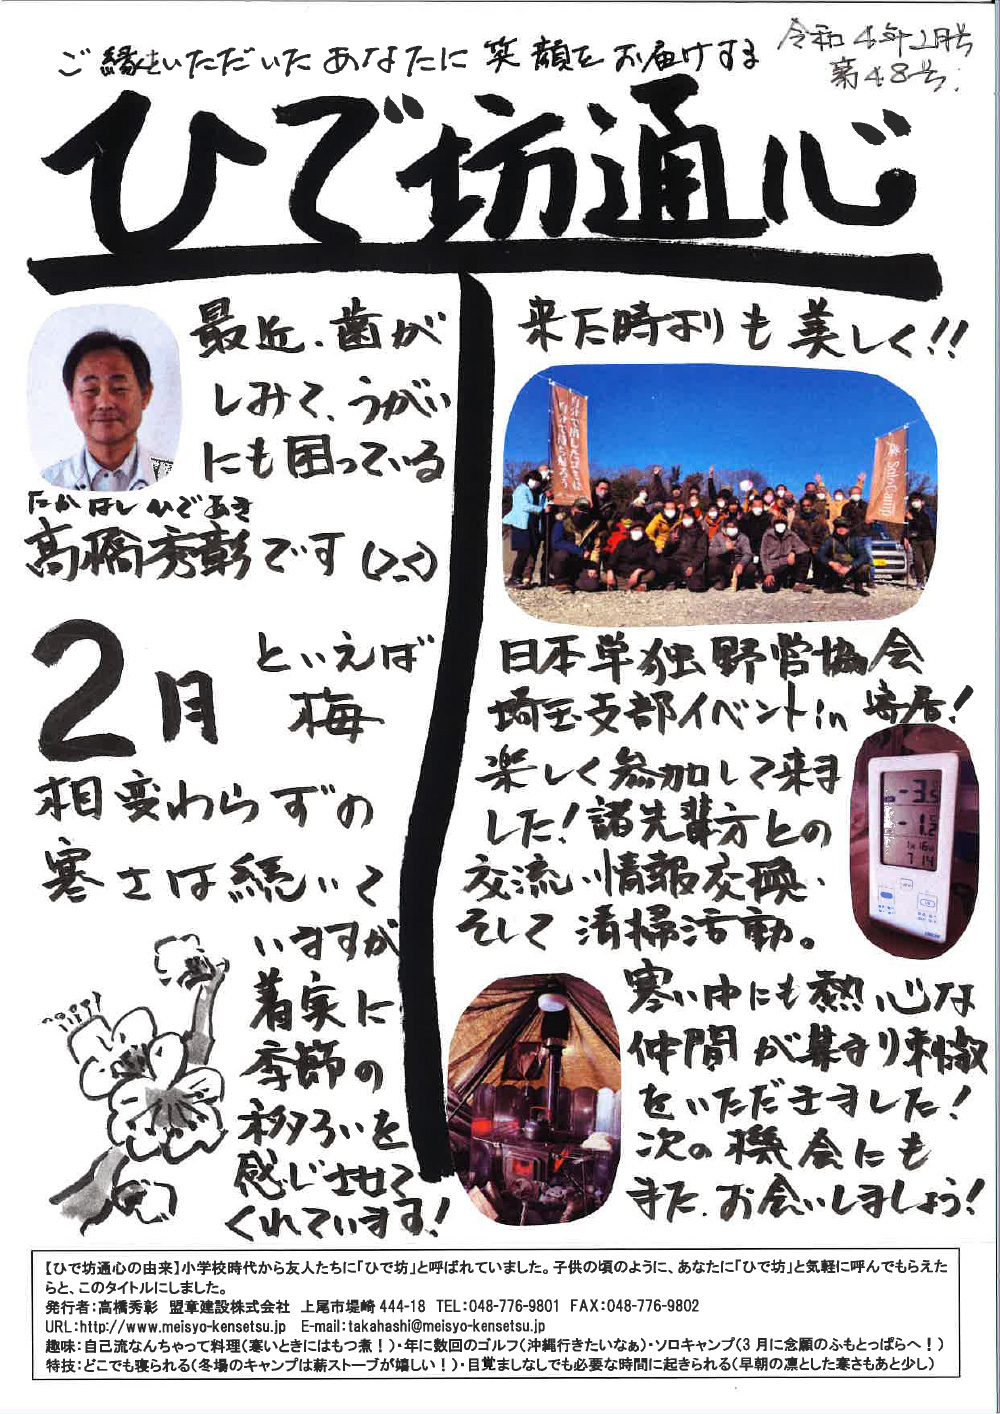 ご縁をいただいたあなたに笑顔をお届けする
令和4年2月号
第48号
ひで坊通心
最近、歯が
しみて、うがい
にも困っている
たかはしひであき
高橋秀彰です(>_<)
2月
といえば
梅
相変わらずの
寒さは続いて
いますが
着実に
季節の
移ろいを
感じさせて
くれています!
来た時よりも美しく!!
自分で出したゴミは
自分で持ち帰ろう
Solo Camp
日本単独野営協会
埼玉支部イベントin寄居!
楽しく参加して来ま
した!諸先輩方との
交流、情報交換、
そして清掃活動。
寒い中にも熱心な
仲間が集まり刺激
をいただきました!
次の機会にも
また、お会いしましょう!
【ひで坊通心の由来】小学校時代から友人たちに「ひで坊」と呼ばれていました。子供の頃のように、あなたに「ひで坊」と気軽に呼んでもらえた
らと、このタイトルにしました。
発行者:高橋秀彰 盟章建設株式会社 上尾市堤崎444-18 TEL:048-776-9801 FAX:048-776-9802
URL:http://www.meisyo-kensetsu.jp E-mail:takahashi@meisyo-kensetsu.jp
趣味:自己流なんちゃって料理(寒いときにはもつ煮!)・年に数回のゴルフ(沖縄行きたいなぁ)・ソロキャンプ(3月に念願のふもとっぱらへ!)
特技:どこでも寝られる(冬場のキャンプは薪ストーブが嬉しい!)・目覚ましなしでも必要な時間に起きられる(早朝の凛とした寒さもあと少し)